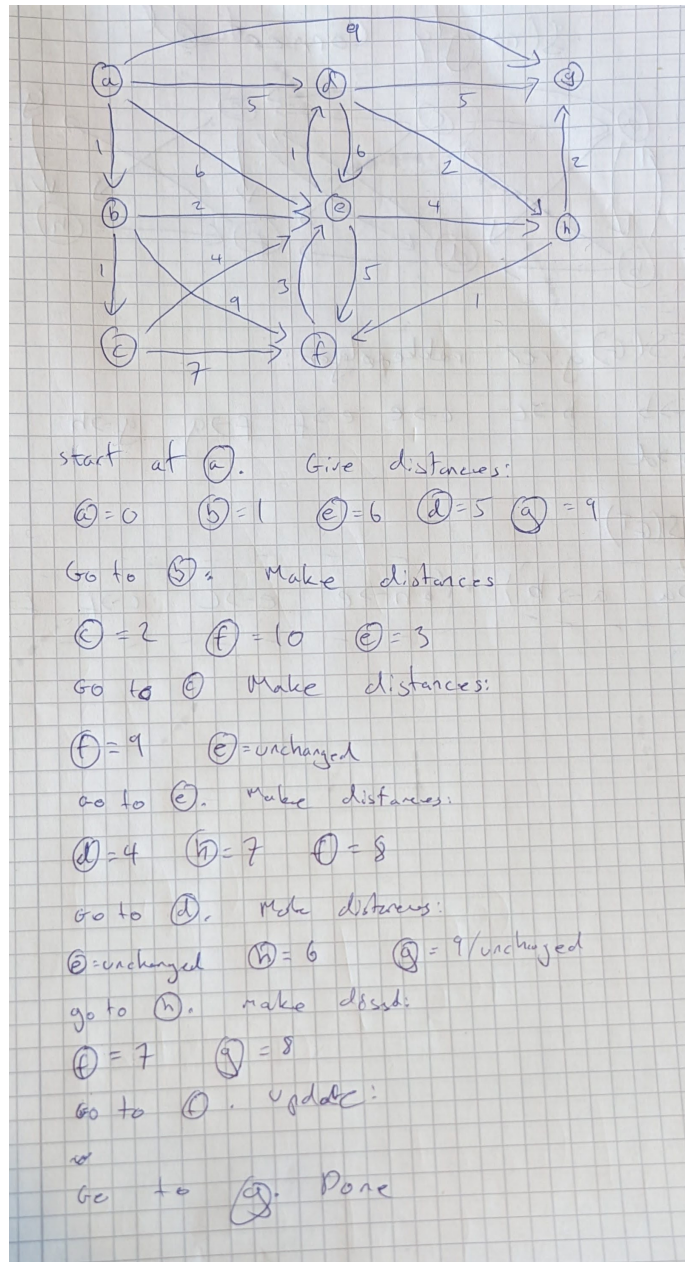 9
a 5 d 5 g
1 6 1 6 2 2
b 2 e 4 h
1 4 9 3 5 1
c 7 f
start at a. Give distances:
a=0 b=1 e=6 d=5 g=9
Go to b. Make distances
c=2 f=10 e=3
Go to c Make distances:
f=9 e=unchanged
Go to e. Make distances:
d=4 h=7 f=8
Go to d. Make distances:
e=unchanged h=6 g=9/unchanged
go to h. make
f=7 g=8
Go to f. update:
Go to g. Done